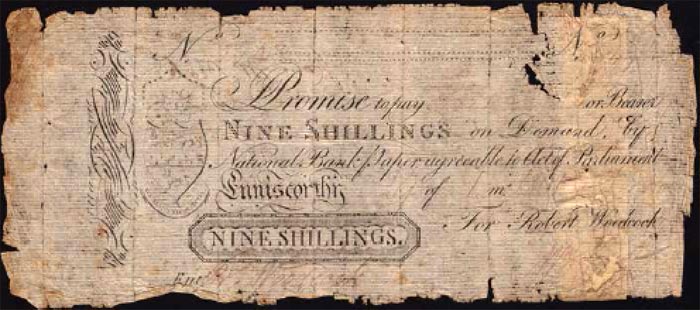 No No
I Promise to pay or Bearer
NINE SHILLINGS on Demand, by
National Bank Paper agreeable to Act of Parliament
Enniscorthy of 1
For Robert Woodcock
NINE SHILLINGS.
Entd